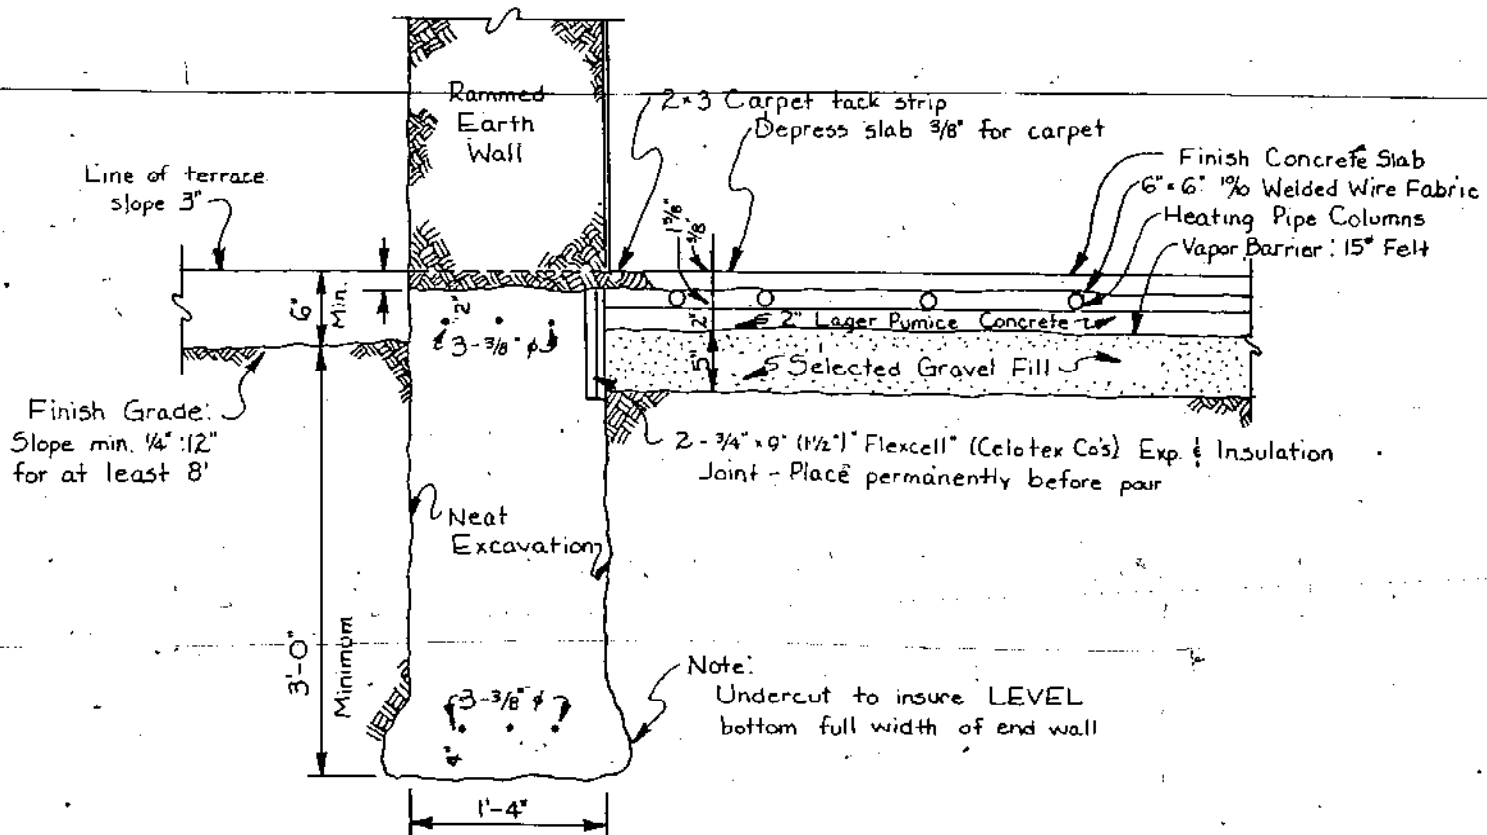 Rammed
Earth
Wall
2×3 Carpet tack strip
Depress slab 3/8" for carpet
Line of terrace
slope 3"
Finish Concrete Slab
6"×6" 10/10 Welded Wire Fabric
Heating Pipe Columns
Vapor Barrier: 15# Felt
1 5/8"
3/8"
6"
Min.
2"
3-3/8" ϕ
2"
2" Lager Pumice Concrete
5"
Selected Gravel Fill
Finish Grade:
Slope min. 1/4":12"
for at least 8'
2-3/4"×9" (1 1/2") "Flexcell" (Celotex Co's) Exp. & Insulation
Joint - Place permanently before pour
Neat
Excavation
3'-0"
Minimum
3-3/8" ϕ
4"
Note:
Undercut to insure LEVEL
bottom full width of end wall
1'-4"